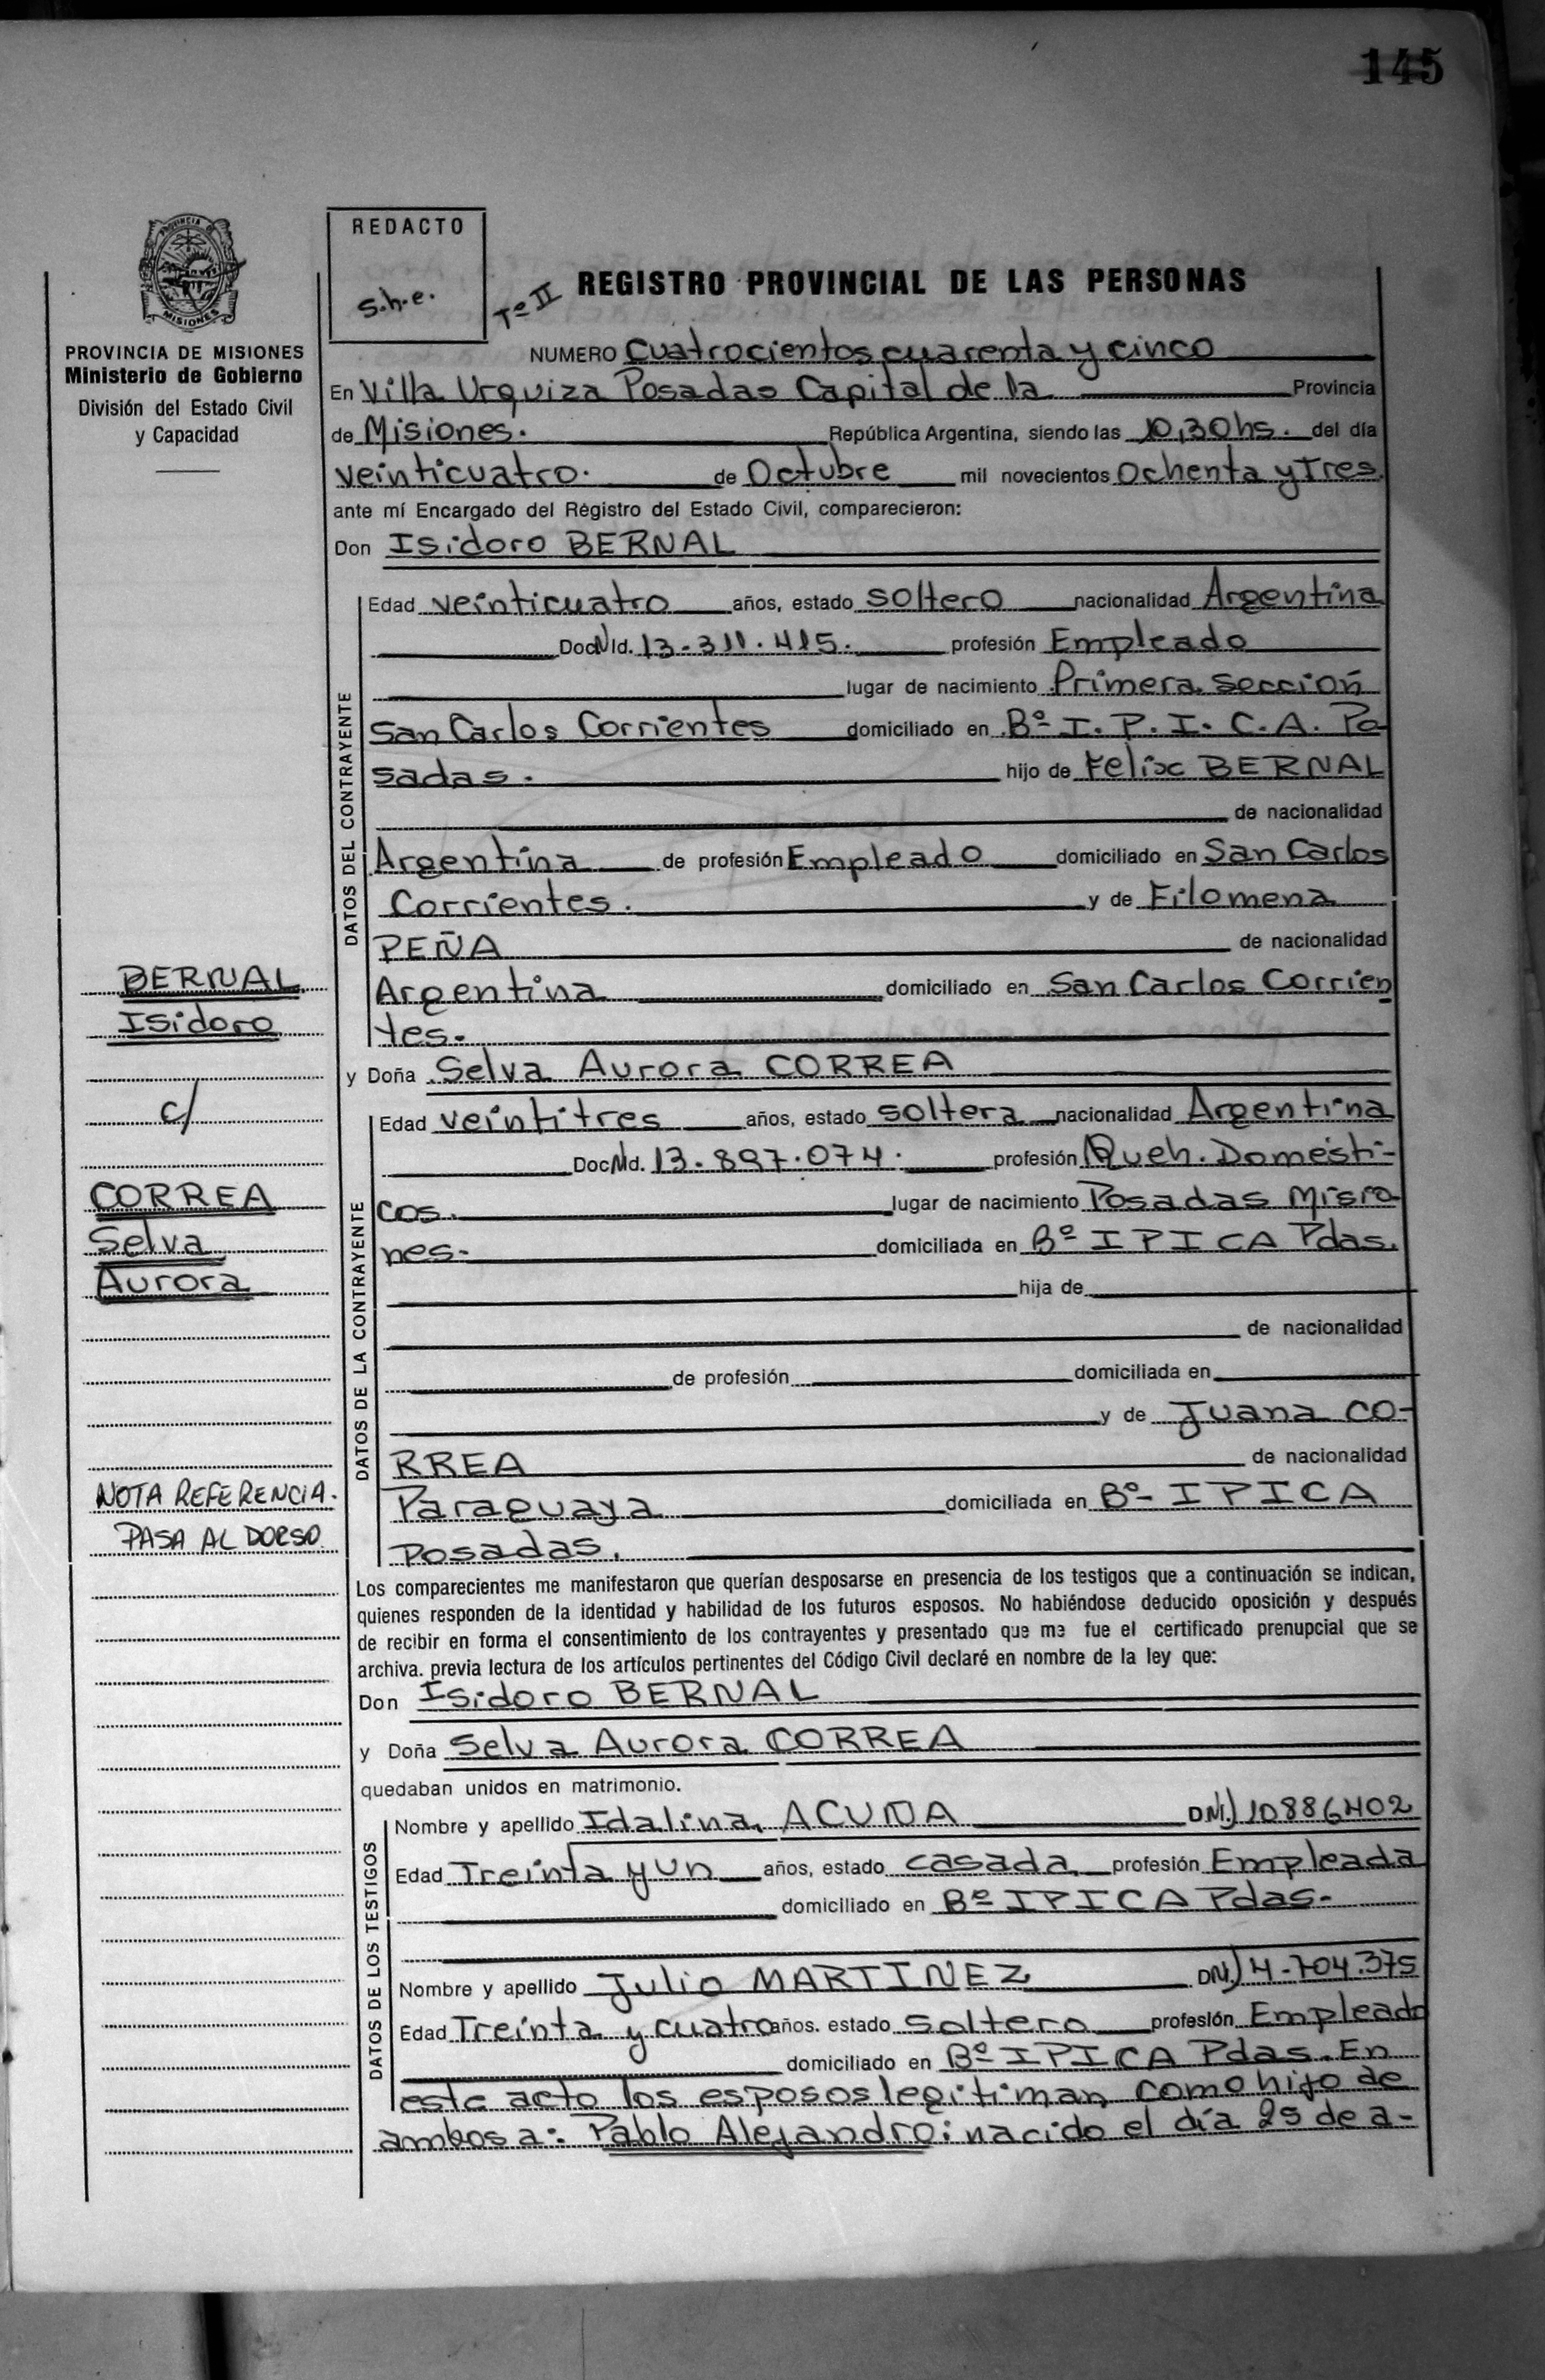 145
PROVINCIA DE
MISIONES
PROVINCIA DE MISIONES
Ministerio de Gobierno
División del Estado Civil
y Capacidad
REDACTO
s.h.e.
Tº II
REGISTRO PROVINCIAL DE LAS PERSONAS
NUMERO Cuatrocientos cuarenta y cinco
En Villa Urquiza Posadas Capital de la Provincia
de Misiones. República Argentina, siendo las 10,30 hs. del día
veinticuatro. de Octubre mil novecientos Ochenta y Tres
ante mí Encargado del Régistro del Estado Civil, comparecieron:
Don Isidoro BERNAL
DATOS DEL CONTRAYENTE
Edad veinticuatro años, estado soltero nacionalidad Argentina
Doc N Id. 13-311.415. profesión Empleado
lugar de nacimiento Primera Sección
San Carlos Corrientes domiciliado en Bº I.P.I.C.A. Po-
sadas. hijo de Felix BERNAL
de nacionalidad
Argentina de profesión Empleado domiciliado en San Carlos
Corrientes. y de Filomena
PEÑA de nacionalidad
Argentina domiciliado en San Carlos Corrien
tes.
y Doña Selva Aurora CORREA
DATOS DE LA CONTRAYENTE
Edad veintitres años, estado soltera nacionalidad Argentina
Doc N Id. 13-897.074. profesión Queh. Domésti-
cos. lugar de nacimiento Posadas Misio
nes- domiciliada en Bº IPICA Pdas.
hija de
de nacionalidad
de profesión domiciliada en
y de Juana CO-
RREA de nacionalidad
Paraguaya domiciliada en Bº IPICA
Posadas.
BERNAL
Isidoro
c/
CORREA
Selva
Aurora
NOTA REFERENCIA.
PASA AL DORSO
Los comparecientes me manifestaron que querían desposarse en presencia de los testigos que a continuación se indican,
quienes responden de la identidad y habilidad de los futuros esposos. No habiéndose deducido oposición y después
de recibir en forma el consentimiento de los contrayentes y presentado que me fue el certificado prenupcial que se
archiva. previa lectura de los artículos pertinentes del Código Civil declaré en nombre de la ley que:
Don Isidoro BERNAL
y Doña Selva Aurora CORREA
quedaban unidos en matrimonio.
DATOS DE LOS TESTIGOS
Nombre y apellido Idalina ACUÑA DNI) 10886402
Edad Treinta y un años, estado casada profesión Empleada
domiciliado en Bº IPICA Pdas-
Nombre y apellido Julio MARTINEZ DNI) 4-704.375
Edad Treinta y cuatro años. estado soltero profesión Empleado
domiciliado en Bº IPICA Pdas. En
este acto los esposos legitiman como hijo de
ambos a: Pablo Alejandro: nacido el día 25 de a-